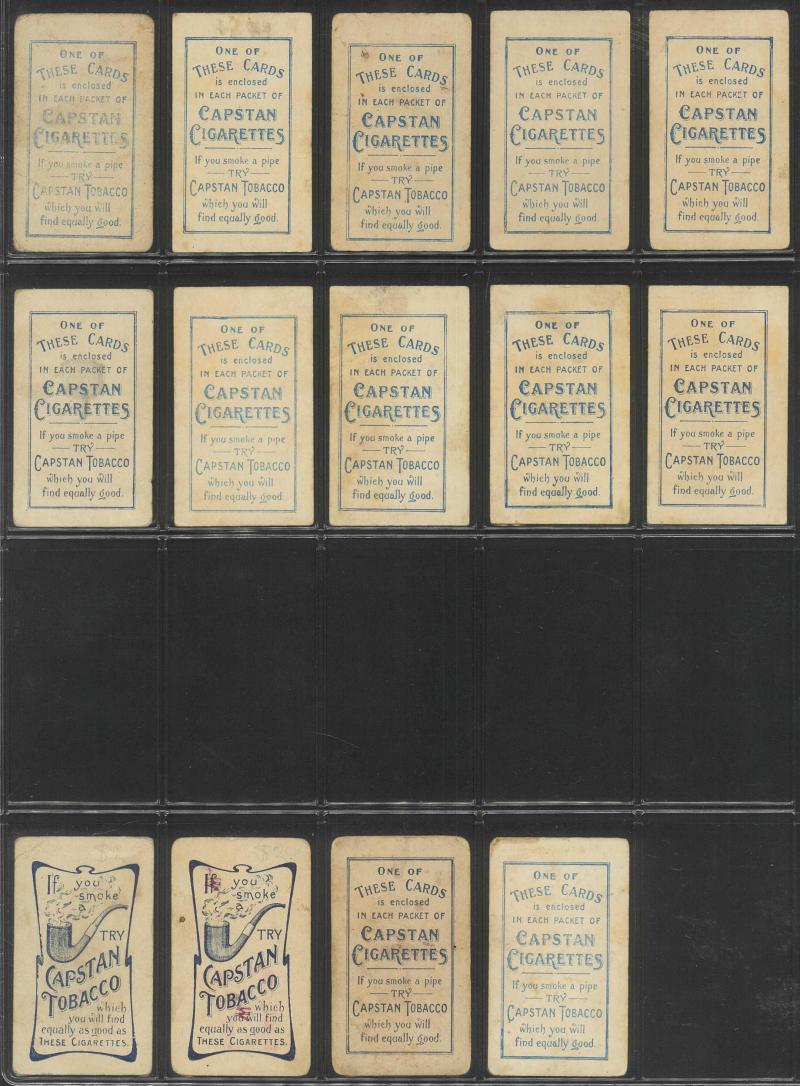 One of
These Cards
is enclosed
in each packet of
Capstan
Cigarettes
If you smoke a pipe
— Try —
Capstan Tobacco
which you will
find equally good.
One of
These Cards
is enclosed
in each packet of
Capstan
Cigarettes
If you smoke a pipe
— Try —
Capstan Tobacco
which you will
find equally good.
One of
These Cards
is enclosed
in each packet of
Capstan
Cigarettes
If you smoke a pipe
— Try —
Capstan Tobacco
which you will
find equally good.
One of
These Cards
is enclosed
in each packet of
Capstan
Cigarettes
If you smoke a pipe
— Try —
Capstan Tobacco
which you will
find equally good.
One of
These Cards
is enclosed
in each packet of
Capstan
Cigarettes
If you smoke a pipe
— Try —
Capstan Tobacco
which you will
find equally good.
One of
These Cards
is enclosed
in each packet of
Capstan
Cigarettes
If you smoke a pipe
— Try —
Capstan Tobacco
which you will
find equally good.
One of
These Cards
is enclosed
in each packet of
Capstan
Cigarettes
If you smoke a pipe
— Try —
Capstan Tobacco
which you will
find equally good.
One of
These Cards
is enclosed
in each packet of
Capstan
Cigarettes
If you smoke a pipe
— Try —
Capstan Tobacco
which you will
find equally good.
One of
These Cards
is enclosed
in each packet of
Capstan
Cigarettes
If you smoke a pipe
— Try —
Capstan Tobacco
which you will
find equally good.
One of
These Cards
is enclosed
in each packet of
Capstan
Cigarettes
If you smoke a pipe
— Try —
Capstan Tobacco
which you will
find equally good.
If you
smoke
a
Try
Capstan
Tobacco
which
you will find
equally as good as
These Cigarettes.
If you
smoke
a
Try
Capstan
Tobacco
which
you will find
equally as good as
These Cigarettes.
One of
These Cards
is enclosed
in each packet of
Capstan
Cigarettes
If you smoke a pipe
— Try —
Capstan Tobacco
which you will
find equally good.
One of
These Cards
is enclosed
in each packet of
Capstan
Cigarettes
If you smoke a pipe
— Try —
Capstan Tobacco
which you will
find equally good.